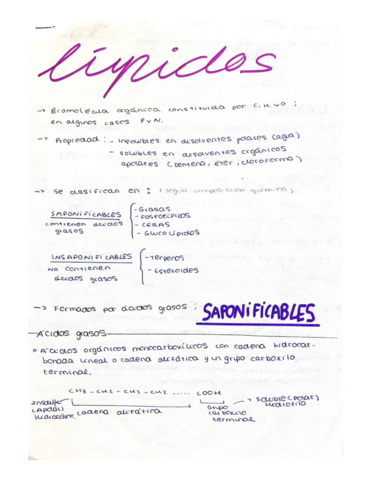 lípidos
→ Biomolécula orgánica constituida por C, H y O ;
en algunos casos P y N.
→ Propiedad : - insolubles en disolventes polares (agua)
- solubles en disolventes orgánicos
apolares (benceno, éter, cloroformo)
→ se clasifican en : (según composición química)
SAPONIFICABLES
contienen ácidos
grasos
- Grasas
- FOSFOLÍPIDOS
- CERAS
- GLUCOLÍPIDOS
INSAPONIFICABLES
NO contienen
ácidos grasos
- Terpenos
- Esteroides
→ Formados por ácidos grasos : SAPONIFICABLES
Ácidos grasos
Ácidos orgánicos monocarboxílicos con cadena hidrocar-
bonada lineal o cadena alifática y un grupo carboxilo
terminal.
CH3 - CH2 - CH2 - CH2 ..... COOH
(apolar)
Hidrófoba
cadena alifática
Grupo
carboxilo
terminal
→ soluble (polar)
Hidrófila